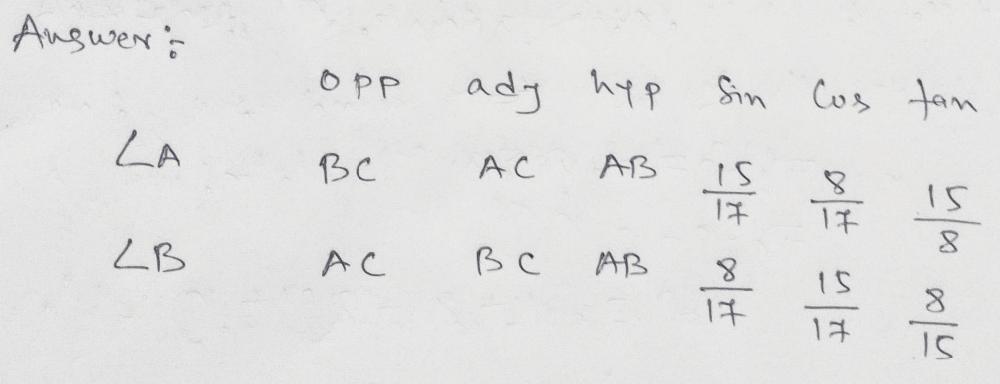 Answer:-
opp adj hyp Sin Cos tan
∠A BC AC AB 15/17 8/17 15/8
∠B AC BC AB 8/17 15/17 8/15